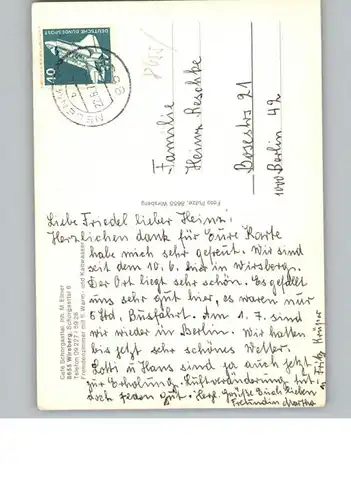 DEUTSCHE BUNDESPOST
40
Familie
Heinz Reschke
Bosestrs 21
1000 Berlin 42
Foto Putze, 8655 Wirsberg
Café Schorgasttal, Inh. M. Ellner
8655 Wirsberg, Schorgasttal 6
Telefon 0 92 27 / 59 26
Fremdenzimmer mit fl. Warm- und Kaltwasser
Liebe Friedel lieber Heinz!
Herzlichen dank für Eure Karte
habe mich sehr gefreut. Wir sind
seit dem 10.6. hier in Wirsberg.
Der Ort liegt sehr schön. Es gefällt
uns sehr gut hier, es waren nur
5 Std. Busfahrt. Am 1.7. sind
wir wieder in Berlin. Wir hatten
bis jetzt sehr schönes Wetter.
Lotti u Hans sind ja auch jetzt
zur Erholung. Luftveränderung tut
doch jeden gut. Herzl. Grüße Euch lieben
Freundin Martha
u Fritz